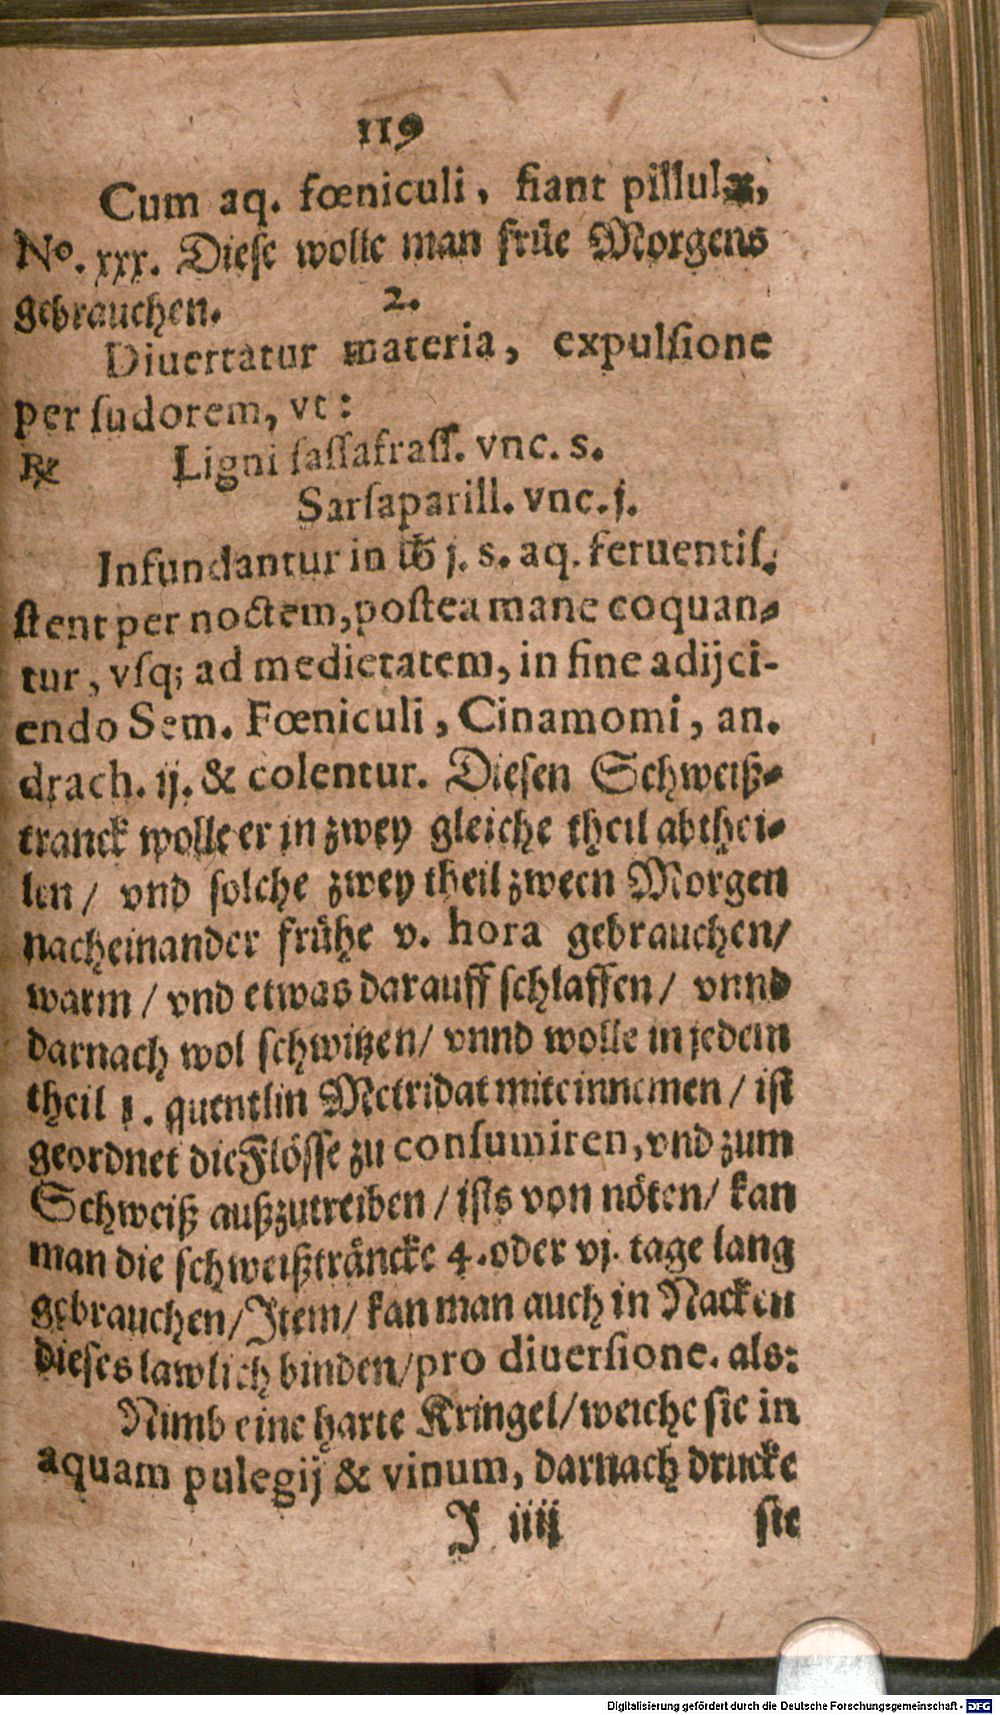 119
Cum aq. fœniculi, fiant pillulæ,
Nº. xxx. Diese wolle man früe Morgens
gebrauchen. 2.
Diuertatur materia, expulsione
per sudorem, vt:
℞ Ligni sassafrass. vnc. s.
Sarsaparill. vnc. j.
Infundantur in ℔ j. s. aq. feruentis.
stent per noctem, postea mane coquan-
tur, vsq; ad medietatem, in fine adijci-
endo Sem. Fœniculi, Cinamomi, an.
drach. ij. & colentur. Diesen Schweiß-
tranck wolle er in zwey gleiche theil abthei-
len / vnd solche zwey theil zween Morgen
nacheinander frühe v. hora gebrauchen/
warm / vnd etwas darauff schlaffen / vnnd
darnach wol schwitzen/ vnnd wolle in jedem
theil 1. quentlin Metridat miteinnemen / ist
geordnet die Flösse zu consumiren, vnd zum
Schweiß außzutreiben / ists von nöten/ kan
man die schweißträncke 4. oder vj. tage lang
gebrauchen/Item/ kan man auch in Nacken
dieses lawlich binden/pro diuersione. als:
Nimb eine harte Kringel/weiche sie in
aquam pulegij & vinum, darnach drucke
J iiij sie
Digitalisierung gefördert durch die Deutsche Forschungsgemeinschaft - DFG